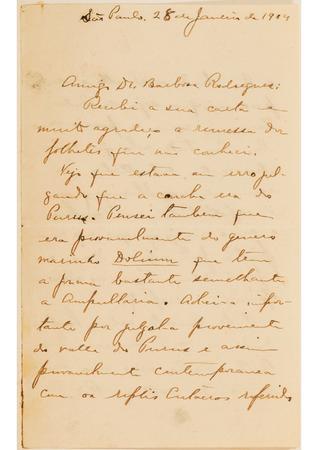 São Paulo, 28 de Janeiro de 1904
Amigo Dr. Barbosa Rodrigues:
Recebi a sua carta e
muito agradeço a remessa dos
folhetos que não conheci.
Vejo que estava em erro jul-
gando que a concha era do
Purus. Pensei tambem que
era provavelmente do genero
marinho Dolium que tem
a forma bastante semelhante
a Ampullaria. Achei-a impor-
tante por julgal-a proveniente
do valle do Purus e assim
provavelmente contemporanea
com os reptis Cretaceos referidos